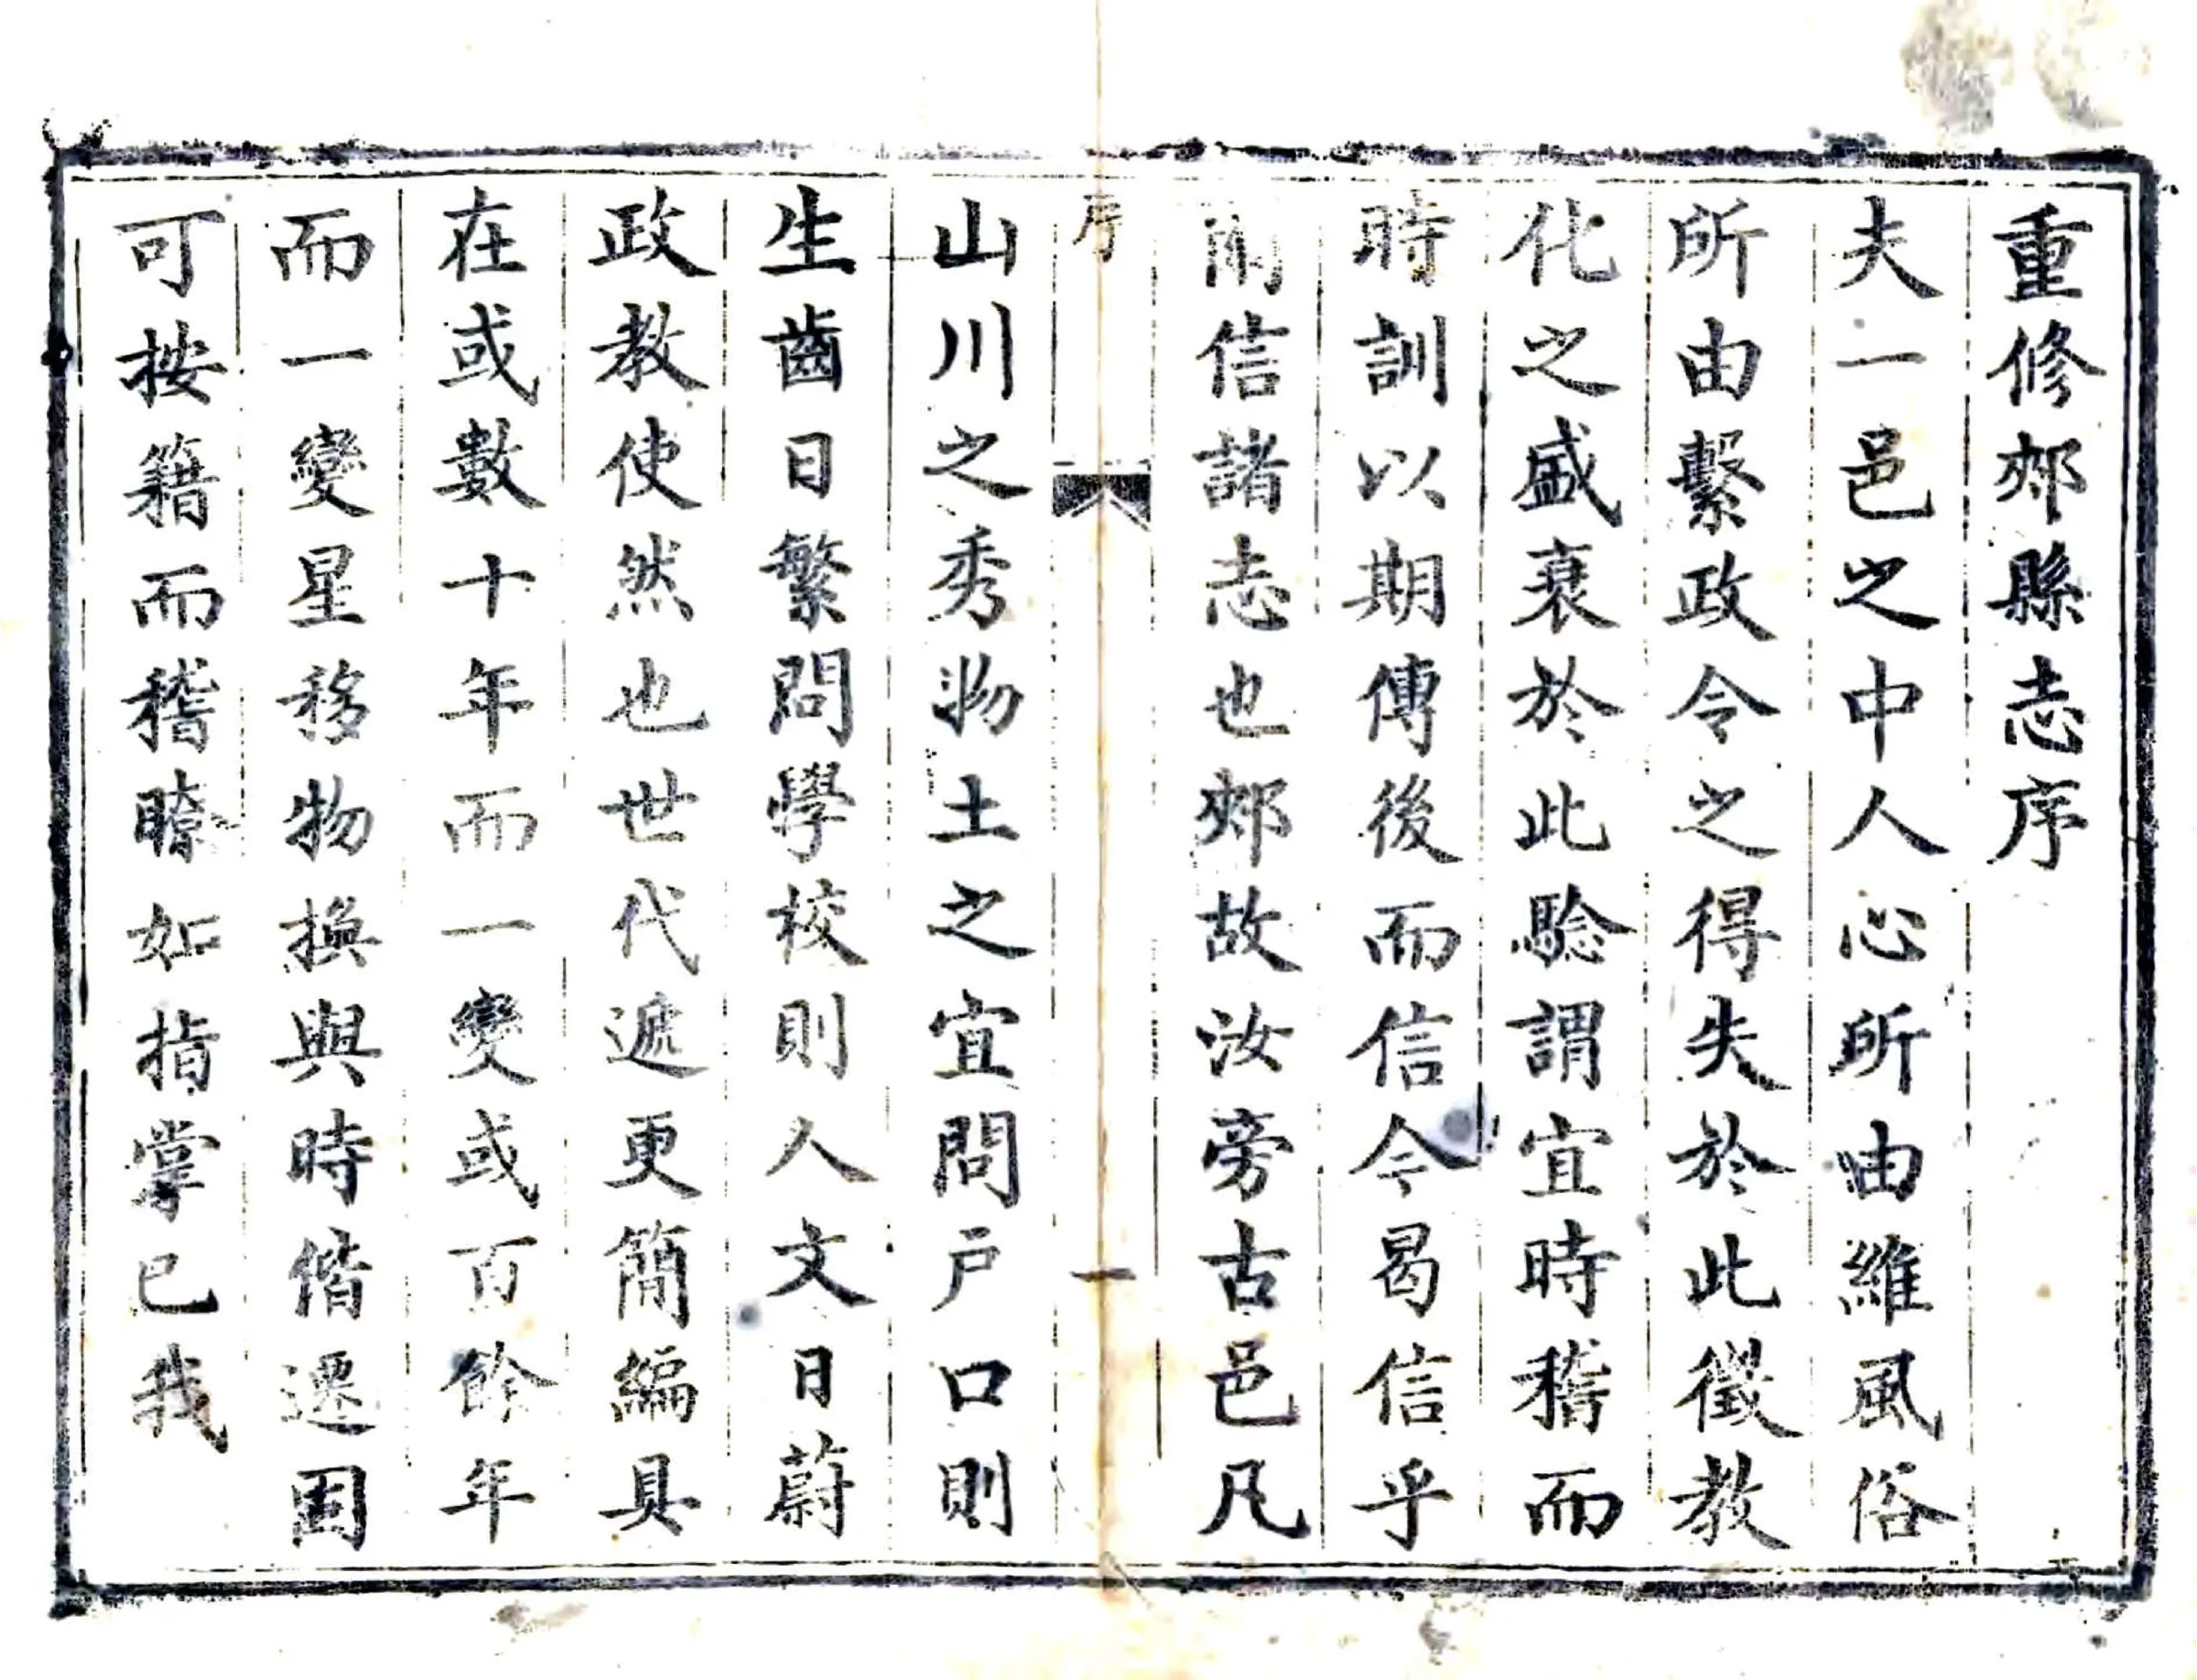 重修郟縣志序
夫一邑之中人心所由維風俗
所由繫政令之得失於此徵教
化之盛衰於此騐謂宜時稽而
時訓以期傳後而信今曷信乎
信諸志也郟故汝旁古邑凡
序 一
山川之秀物土之宜問户口則
生齒日繁問學校則人文日蔚
政教使然也世代遞更簡編具
在或數十年而一變或百餘年
而一變星移物換與時偕遷固
可按籍而稽瞭如指掌已我